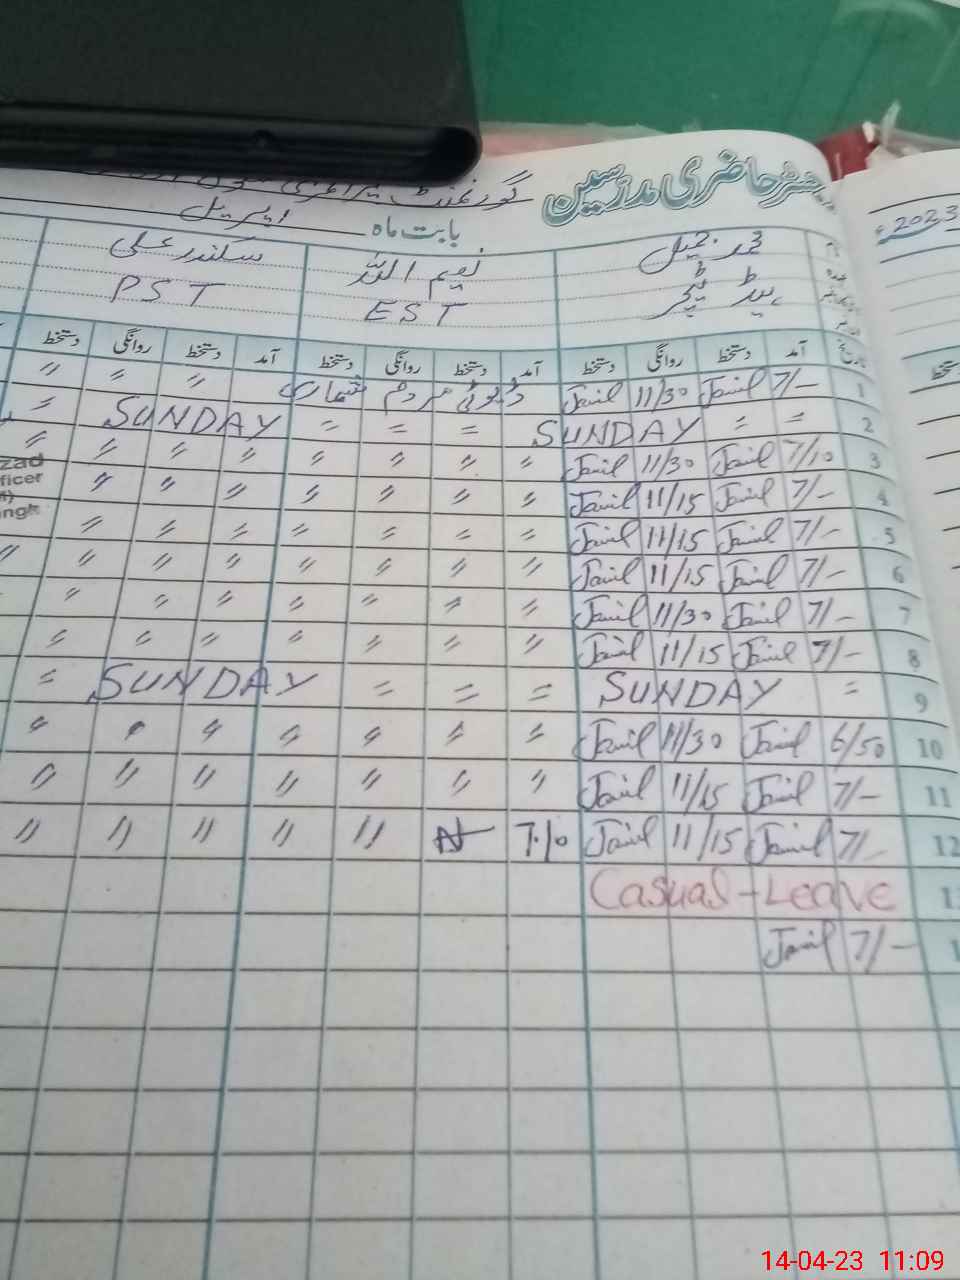 رجسٹر حاضری مدرسین
گورنمنٹ پرائمری سکول
بابت ماہ اپریل
2023ء
نام محمد جمیل نعیم اللہ سکندر علی
عہدہ ہیڈ ٹیچر EST PST
تاریخ آمد دستخط روانگی دستخط آمد دستخط روانگی دستخط آمد دستخط روانگی دستخط
دستخط
1 7/- Jamil 11/30 Jamil ڈیوٹی مردم شماری 〃 〃 〃
2 = = SUNDAY = = = SUNDAY =
3 7/10 Jamil 11/30 Jamil 〃 〃 〃 〃 〃 〃 〃 〃
4 7/- Jamil 11/15 Jamil 〃 〃 〃 〃 〃 〃 〃
5 7/- Jamil 11/15 Jamil 〃 〃 〃 〃 〃 〃 〃
6 7/- Jamil 11/15 Jamil 〃 〃 〃 〃 〃 〃 〃 〃
7 7/- Jamil 11/30 Jamil 〃 〃 〃 〃 〃 〃 〃
8 7/- Jamil 11/15 Jamil 〃 〃 〃 〃 〃 〃 〃 〃
9 = SUNDAY = = = SUNDAY =
10 6/50 Jamil 11/30 Jamil 〃 〃 〃 〃 〃 〃 〃
11 7/- Jamil 11/15 Jamil 〃 〃 〃 〃 〃 〃 〃 〃
12 7/- Jamil 11/15 Jamil 7.10 〃 〃 〃 〃 〃
Casual-Leave
7/- Jamil
zad
ficer
14-04-23 11:09